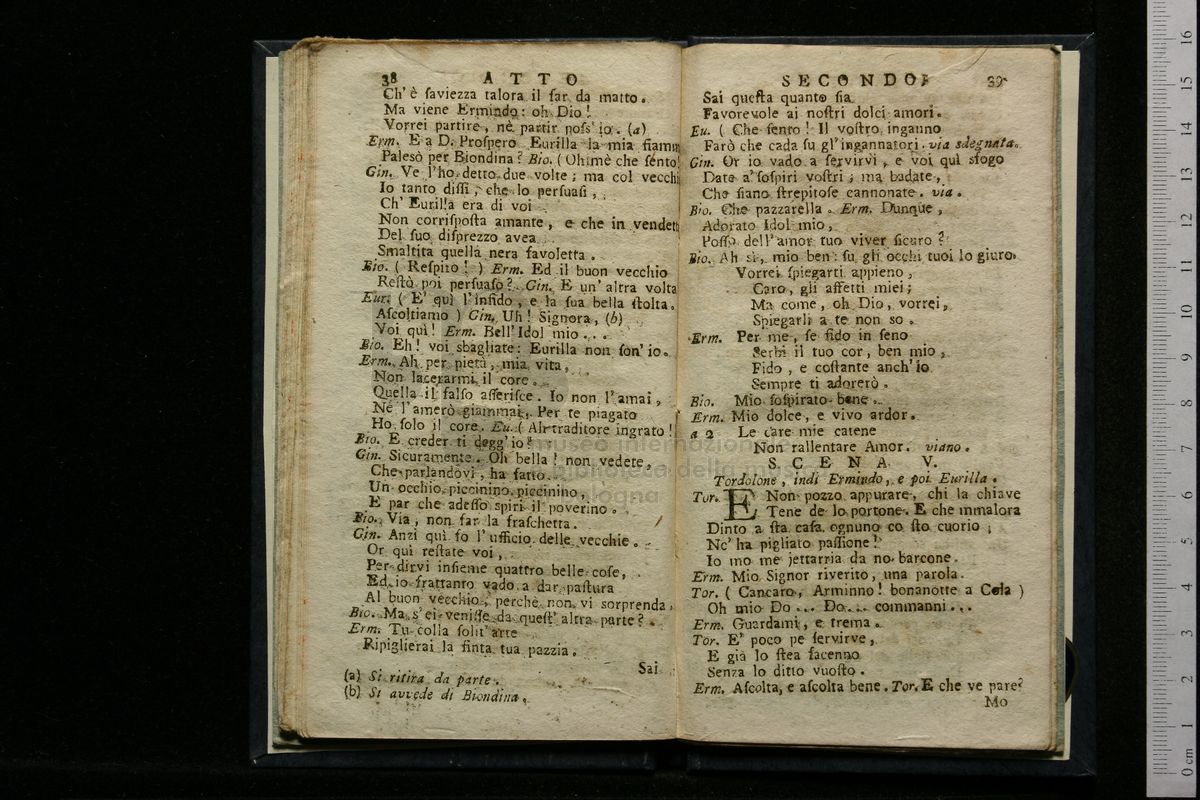 38 ATTO
Ch' è ſaviezza talora il far da matto.
Ma viene Ermindo: oh Dio!
Vorrei partire, nè partir poſs' io. (a)
Erm. E a D. Proſpero Eurilla la mia fiamm
Palesò per Biondina? Bio. (Ohimè che ſento!
Gin. Ve l'ho detto due volte; ma col vecchi
Io tanto diſſi, che lo perſuaſi,
Ch' Eurilla era di voi
Non corriſpoſta amante, e che in vendett
Del ſuo diſprezzo avea
Smaltita quella nera favoletta.
Bio. (Reſpiro!) Erm. Ed il buon vecchio
Reſtò poi perſuaſo? Gin. E un' altra volta
Eur. (E' quì l'infido, e la ſua bella ſtolta.
Aſcoltiamo) Gin. Uh! Signora, (b)
Voi quì! Erm. Bell' Idol mio...
Bio. Eh! voi sbagliate: Eurilla non ſon' io.
Erm. Ah per pietà, mia vita,
Non lacerarmi il core.
Quella il falſo aſſeriſce. Io non l'amai,
Nè l'amerò giammai. Per te piagato
Ho ſolo il core. Eu. (Ah traditore ingrato!
Bio. E creder ti degg' io?
Gin. Sicuramente. Oh bella! non vedete,
Che parlandovi, ha fatto
Un occhio piccinino piccinino,
E par che adeſſo ſpiri il poverino.
Bio. Via, non far la fraſchetta.
Gin. Anzi quì fo l'ufficio delle vecchie.
Or quì reſtate voi,
Per dirvi inſieme quattro belle coſe,
Ed io frattanto vado a dar paſtura
Al buon vecchio, perchè non vi sorprenda,
Bio. Ma s'ei veniſſe da queſt' altra parte?
Erm. Tu colla ſolit' arte
Ripiglierai la finta tua pazzia.
Sai
(a) Si ritira da parte.
(b) Si avvede di Biondina.
SECONDO. 39
Sai queſta quanto ſia
Favorevole ai noſtri dolci amori.
Eu. (Che ſento! Il voſtro inganno
Farò che cada ſu gl'ingannatori. via sdegnata.
Gin. Or io vado a ſervirvi, e voi quì sfogo
Date a' ſoſpiri voſtri; ma badate,
Che ſiano ſtrepitoſe cannonate. via.
Bio. Che pazzarella. Erm. Dunque,
Adorato Idol mio,
Poſſo dell' amor tuo viver ſicuro?
Bio. Ah sì, mio ben: ſu gli occhi tuoi lo giuro.
Vorrei ſpiegarti appieno,
Caro, gli affetti miei;
Ma come, oh Dio, vorrei,
Spiegarli a te non so.
Erm. Per me, ſe fido in ſeno
Serbi il tuo cor, ben mio,
Fido, e coſtante anch' io
Sempre ti adorerò.
Bio. Mio ſoſpirato bene.
Erm. Mio dolce, e vivo ardor.
a 2 Le care mie catene
Non rallentare Amor. viano.
SCENA V.
Tordolone, indi Ermindo, e poi Eurilla.
Tor. E Non pozzo appurare, chi la chiave
Tene de lo portone. E che mmalora
Dinto a ſta caſa ognuno co ſto cuorio
Nc' ha pigliato paſſione!
Io mo me jettarria da no barcone.
Erm. Mio Signor riverito, una parola.
Tor. (Cancaro, Arminno! bonanotte a Cola)
Oh mio Do... Do... commanni...
Erm. Guardami, e trema.
Tor. E' poco pe ſervirve,
E già lo ſtea facenno
Senza lo ditto vuoſto.
Erm. Aſcolta, e aſcolta bene. Tor. E che ve pare?
Mo
museo internazionale
biblioteca della musica
bologna
0 cm 1 2 3 4 5 6 7 8 9 10 11 12 13 14 15 16